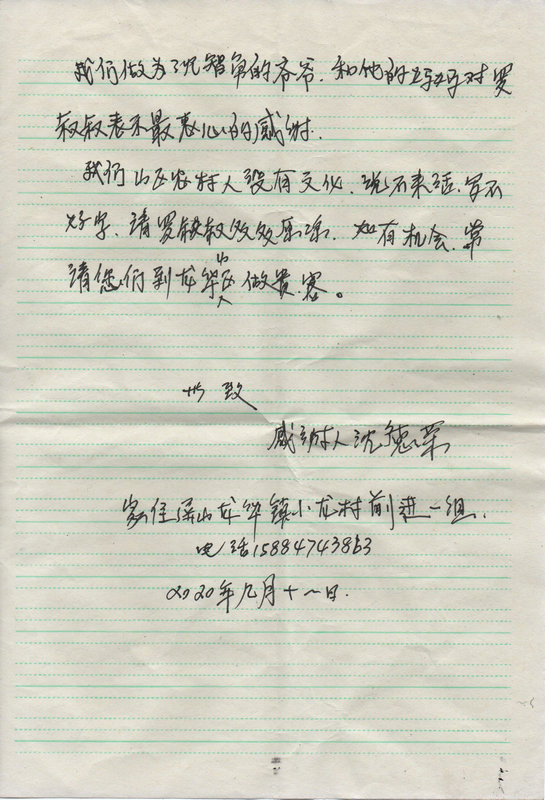 我们做为了沈智单的爷爷.和他的妈妈对罗
叔叔表示最衷心的感谢.
我们山区农村人没有文化.说不来话.写不
好字.请罗叔叔多多原谅.如有机会.常
请您们到龙华山区做贵客。
此致
感谢人沈德荣
家住屏山龙华镇小龙村前进一组.
电话15884743863
2020年九月十一日.